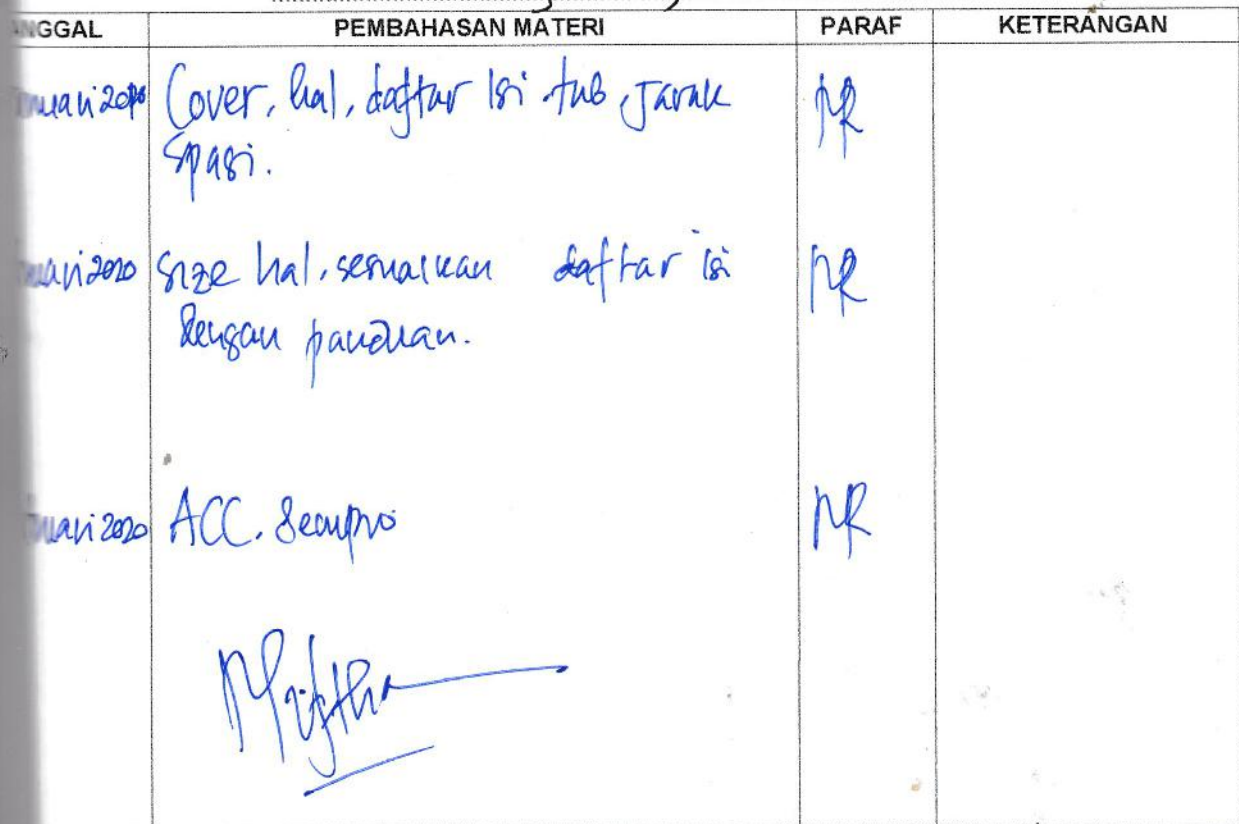 NGGAL PEMBAHASAN MATERI PARAF KETERANGAN
nuari 2020 Cover, hal, daftar isi tab, jarak MR
spasi.
nuari 2020 Size hal. sesuaikan daftar isi MR
dengan panduan.
nuari 2020 ACC. Sempro MR
Miftha